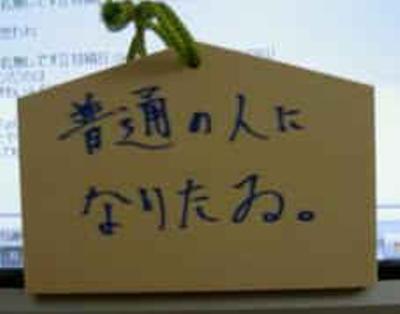 普通の人に
なりたゐ。